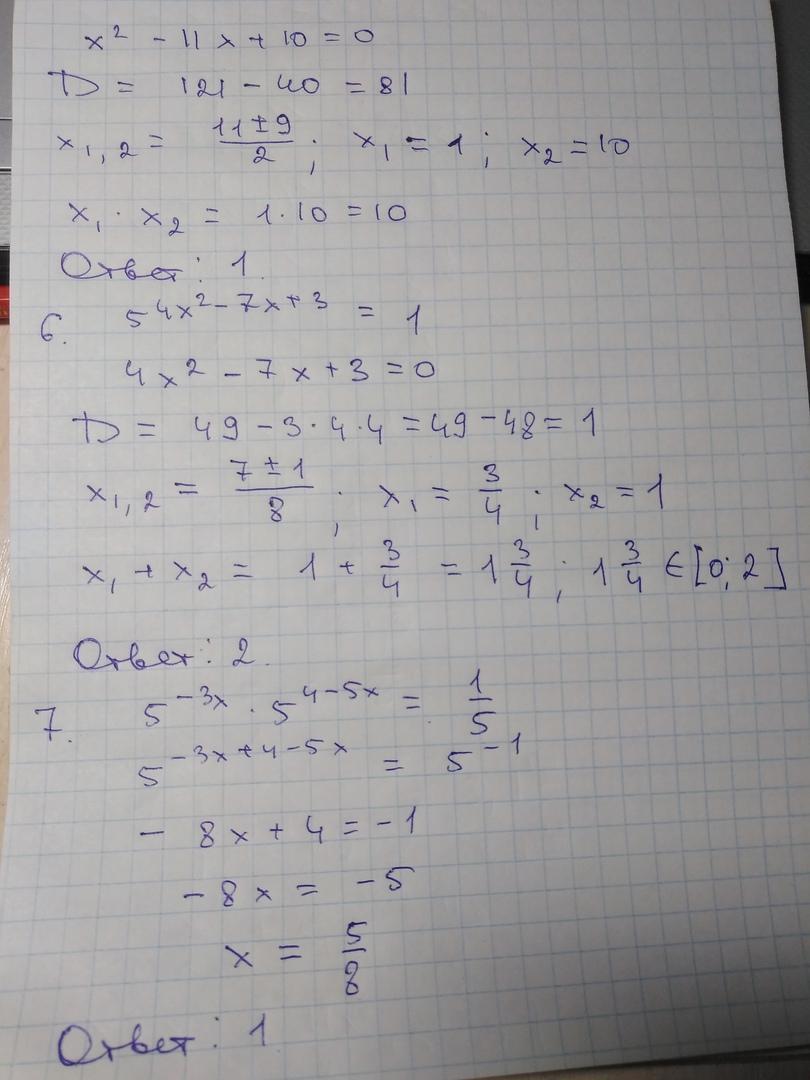 x² - 11x + 10 = 0
D = 121 - 40 = 81
x₁,₂ = (11 ± 9)/2 ; x₁ = 1 ; x₂ = 10
x₁ · x₂ = 1 · 10 = 10
Ответ: 1.
6. 5^(4x² - 7x + 3) = 1
4x² - 7x + 3 = 0
D = 49 - 3 · 4 · 4 = 49 - 48 = 1
x₁,₂ = (7 ± 1)/8 ; x₁ = 3/4 ; x₂ = 1
x₁ + x₂ = 1 + 3/4 = 1 3/4 ; 1 3/4 ∈ [0; 2]
Ответ: 2.
7. 5^(-3x) · 5^(4-5x) = 1/5
5^(-3x+4-5x) = 5^(-1)
- 8x + 4 = -1
- 8x = -5
x = 5/8
Ответ: 1